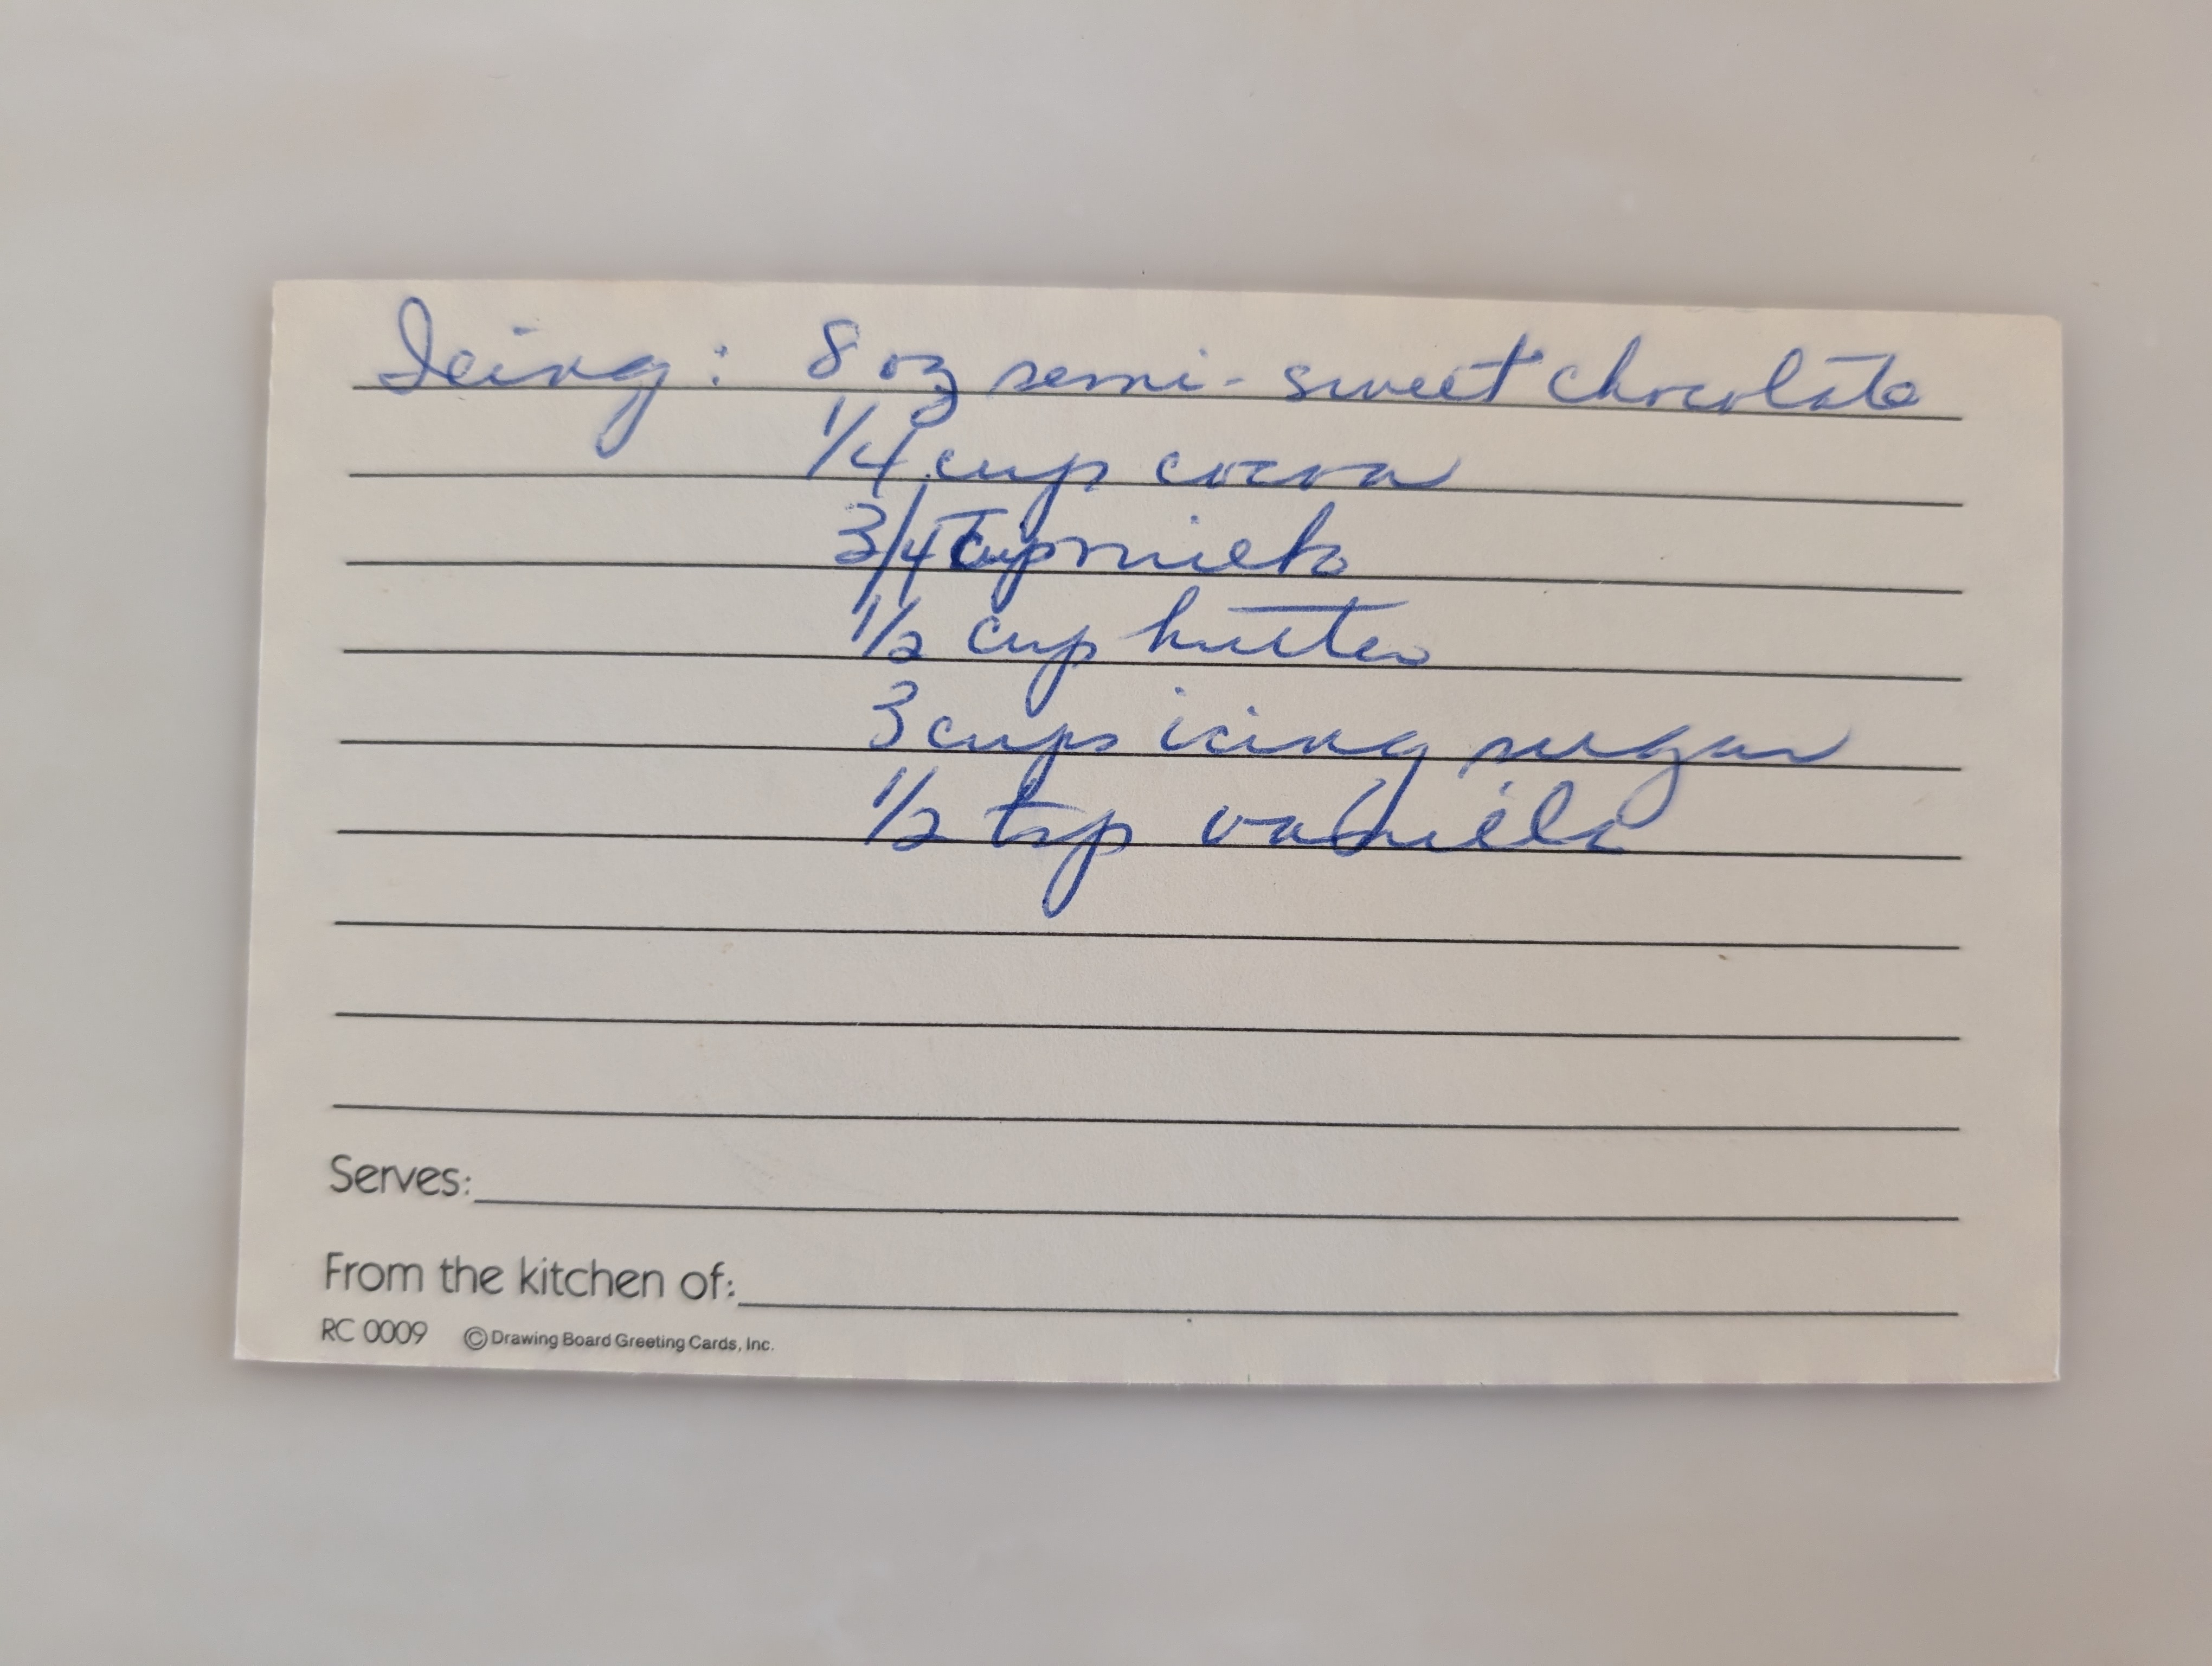 Icing: 8 oz semi-sweet chocolate
1/4 cup cocoa
3/4 cup milk
1/2 cup butter
3 cups icing sugar
1/2 tsp vanilla
Serves:
From the kitchen of:
RC 0009 © Drawing Board Greeting Cards, Inc.